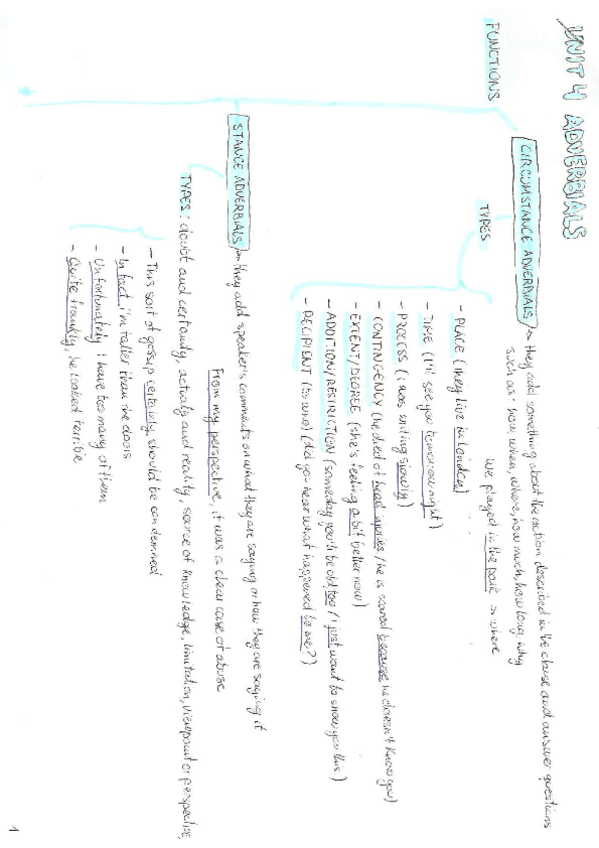 UNIT 4 ADVERBIALS
FUNCTIONS
CIRCUMSTANCE ADVERBIALS → they add something about the action described in the clause and answer questions
such as: how, when, where, how much, how long, why
We played in the park → where
TYPES
- PLACE (they live in London)
- TIME (I'll see you tomorrow night)
- PROCESS (I was writing slowly)
- CONTINGENCY (he died of head injuries / he is scared because he doesn't know you)
- EXTENT/DEGREE (she's feeling a bit better now)
- ADDITION/RESTRICTION (someday you'll be old too / I just want to show you this)
- RECIPIENT (to who) (did you hear what happened to me?)
STANCE ADVERBIALS → they add speaker's comments on what they are saying or how they are saying it
From my perspective, it was a clear case of abuse
TYPES: doubt and certainty, actualy and reality, source of knowledge, limitation, viewpoint or perspective,
- This sort of gossip certainly should be condemned
- In fact i'm taller than the doors
- Unfortunately I have too many of them
- Quite frankly, he looked terrible
1